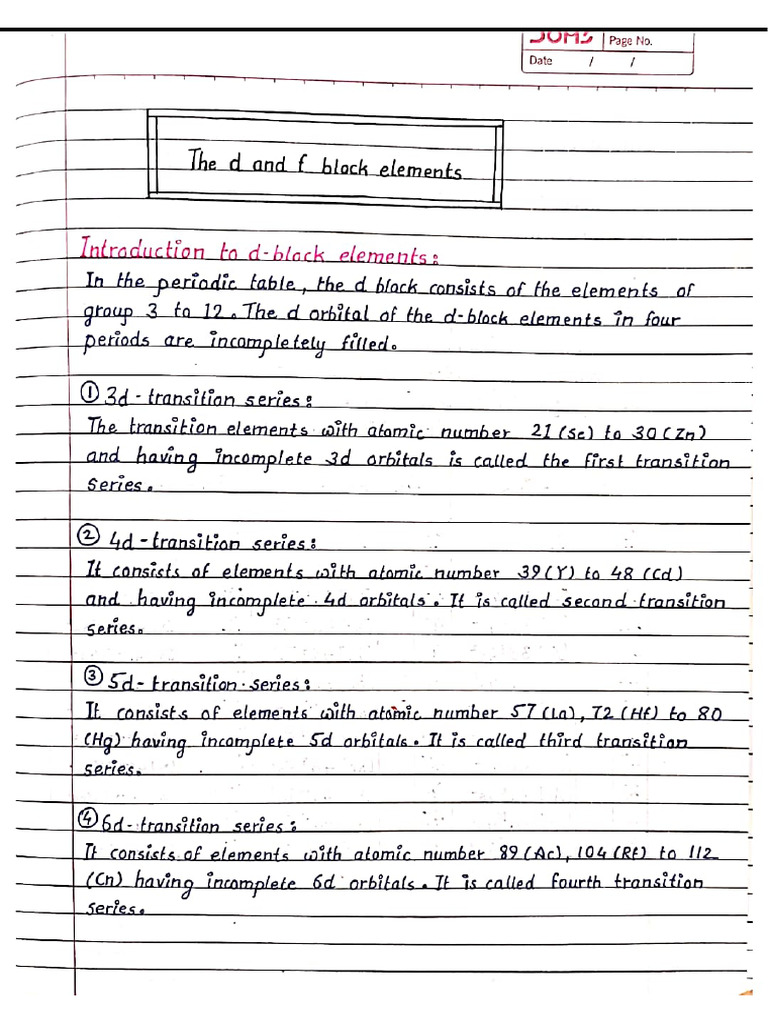 Page No.
Date / /
The d and f block elements
Introduction to d-block elements:
In the periodic table, the d block consists of the elements of
group 3 to 12. The d orbital of the d-block elements in four
periods are incompletely filled.
① 3d-transition series:
The transition elements with atomic number 21(Sc) to 30(Zn)
and having incomplete 3d orbitals is called the first transition
series.
② 4d-transition series:
It consists of elements with atomic number 39(Y) to 48(Cd)
and having incomplete 4d orbitals. It is called second transition
series.
③ 5d-transition series:
It consists of elements with atomic number 57(La), 72(Hf) to 80
(Hg) having incomplete 5d orbitals. It is called third transition
series.
④ 6d-transition series:
It consists of elements with atomic number 89(Ac), 104(Rf) to 112
(Cn) having incomplete 6d orbitals. It is called fourth transition
series.